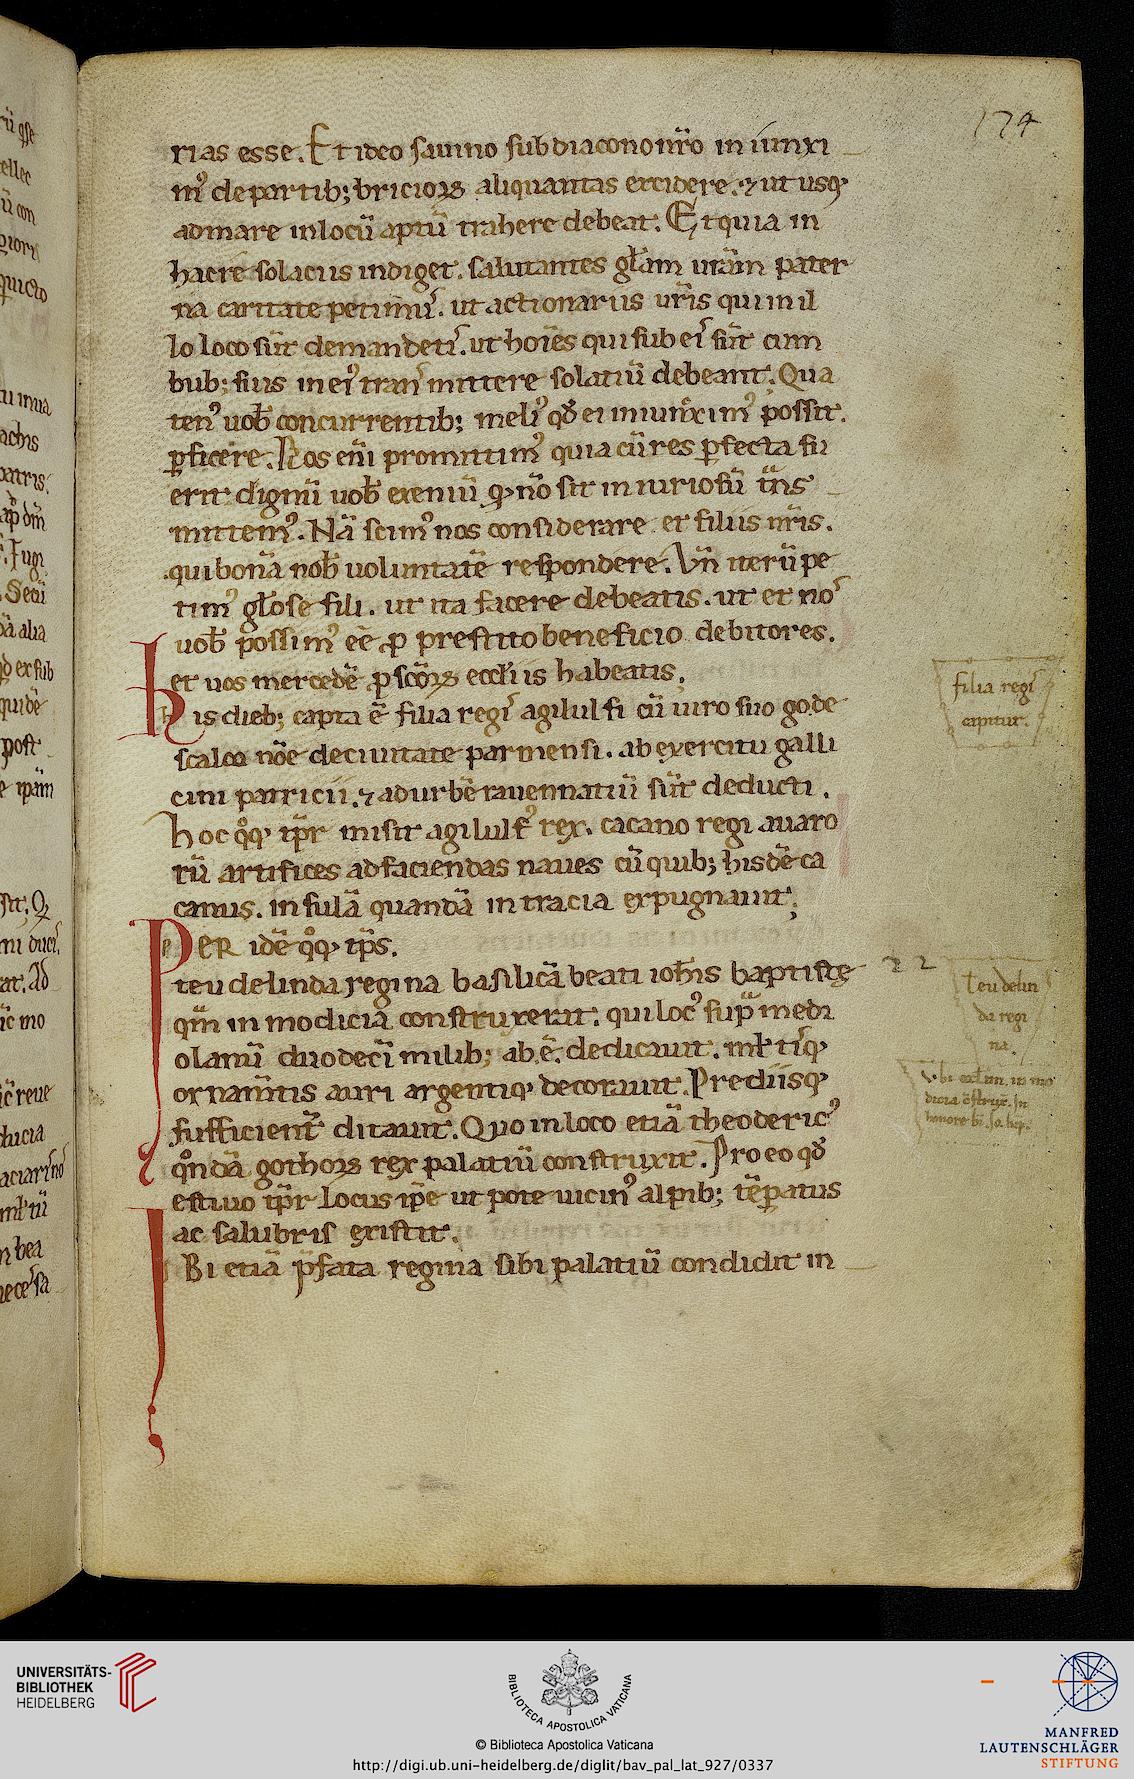 174
rias esse. Et ideo sauino subdiacono nr̄o in iunxi
m᷒ de partib; bricioꝝ aliquantas excidere. ⁊ ut usq;
ad mare in locū aptū trahere debeat. Et quia in
hac re solaciis indiget. salutantes gl̄am ur̄am pater
na caritate petimus᷒. ut actionariis ur̄is qui in il
lo loco sūt demandetis. ut hoīes qui sub eis sūt cum
bub; suis in ei᷒ transmittere solatiū debeant. Qua
ten᷒ uob̄ concurrentib; meli᷒ qd̄ ei iniunxim᷒ possit
ꝑficere. Nos eni promittim᷒ quia cū res ꝑfecta fu
erit dignū uob̄ exeniū q; nō sit in iuriosū tn̄s
mittem᷒. Nā scim᷒ nos considerare et filiis nr̄is.
qui bonā nob̄ uoluntatē respondere. Vn̄ iterū pe
tim᷒ gl̄ose fili. ut ita facere debeatis. ut et nos
uob̄ possim᷒ eē ꝓ prestito beneficio debitores.
et uos mercedē ꝓ scōꝝ eccl̄iis habeatis.
his dieb; capta ē filia regis agilulfi cū uiro suo gode
scalco nōe de ciuitate parmensi. ab exercitu galli
cini patricii. ⁊ ad urbē rauennatiū sūt deducti.
hoc qͦq; tp̄r misit agilulf᷒ rex. cacano regi auaro
rū artifices ad faciendas naues cū quib; hisdē ca
canus. insulā quandā in tracia expugnauit;
PER idē qͦq; tp̄s.
teudelinda regina basilicā beati ioh̄is baptistę
qm̄ in modicia construxerat. qui loc᷒ sup̄ medi
olanū duodecī milib; ab ē. dedicauit. ml̄tisq;
ornam̄tis auri argentiq; decorauit. Prediisq;
sufficient̄ ditauit. Quo in loco etiā theoderic᷒
qͦndā gothoꝝ rex palatiū construxit. Pro eo qd̄
estiuo tp̄r locus ip̄e ut pote uicin᷒ alpib; tēperatus
ac salubris existit.
IBi etiā p̄fata regina sibi palatiū condidit in
filia regis
capitur.
22
teudelin
da regi
na.
UNIVERSITÄTS-
BIBLIOTHEK
HEIDELBERG
BIBLIOTECA APOSTOLICA VATICANA
© Biblioteca Apostolica Vaticana
http://digi.ub.uni-heidelberg.de/diglit/bav_pal_lat_927/0337
MANFRED
LAUTENSCHLÄGER
STIFTUNG